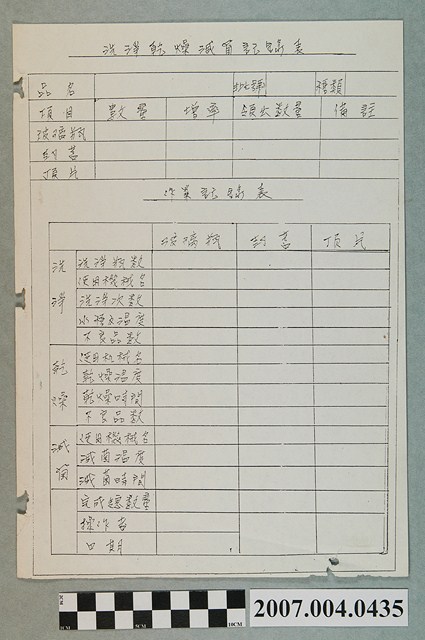 洗淨乾燥滅菌記錄表
品名 批號 種類
項目 數量 增率 領出數量 備註
玻璃瓶
鋁蓋
頂片
作業記錄表
玻璃瓶 鋁蓋 頂片
洗淨
洗淨瓶數
使用機械名
洗淨次數
水種及溫度
不良品數
乾燥
使用机械名
乾燥溫度
乾燥時間
不良品數
滅菌
使用機械名
滅菌溫度
滅菌時間
完成總數量
操作者
日期
2007.004.0435